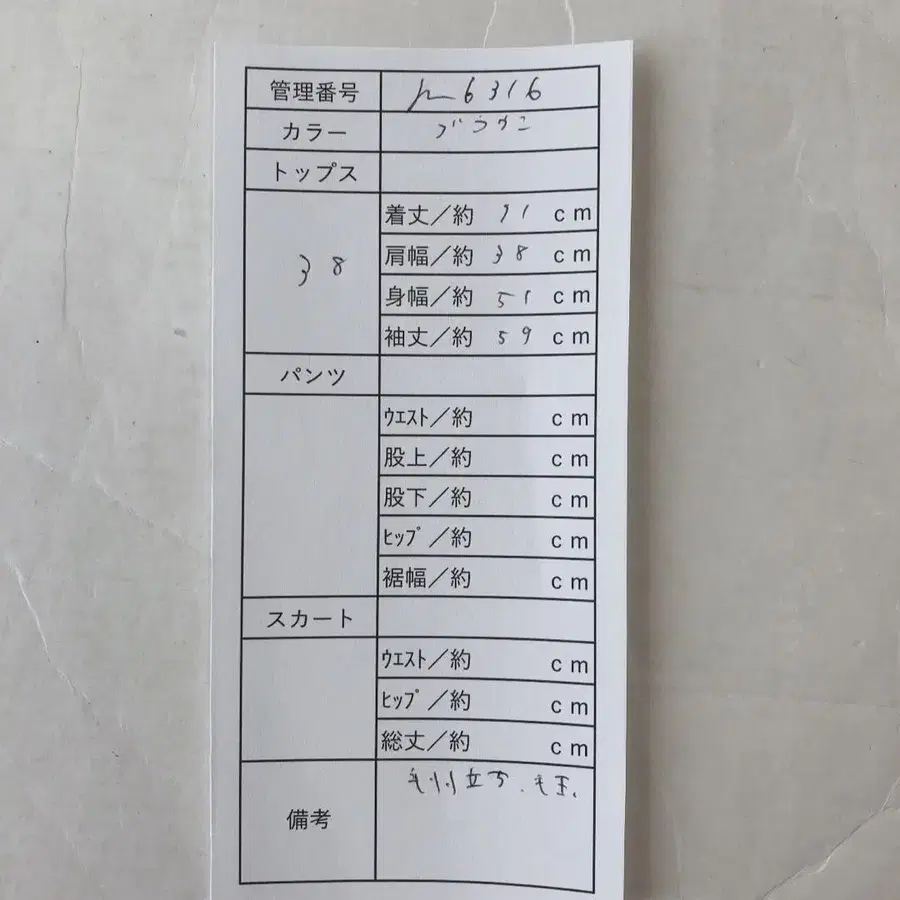 管理番号 6316
カラー ブラウン
トップス
38
着丈／約 91 cm
肩幅／約 38 cm
身幅／約 51 cm
袖丈／約 59 cm
パンツ
ｳｴｽﾄ／約 cm
股上／約 cm
股下／約 cm
ﾋｯﾌﾟ／約 cm
裾幅／約 cm
スカート
ｳｴｽﾄ／約 cm
ﾋｯﾌﾟ／約 cm
総丈／約 cm
備考 毛羽立ち、毛玉、